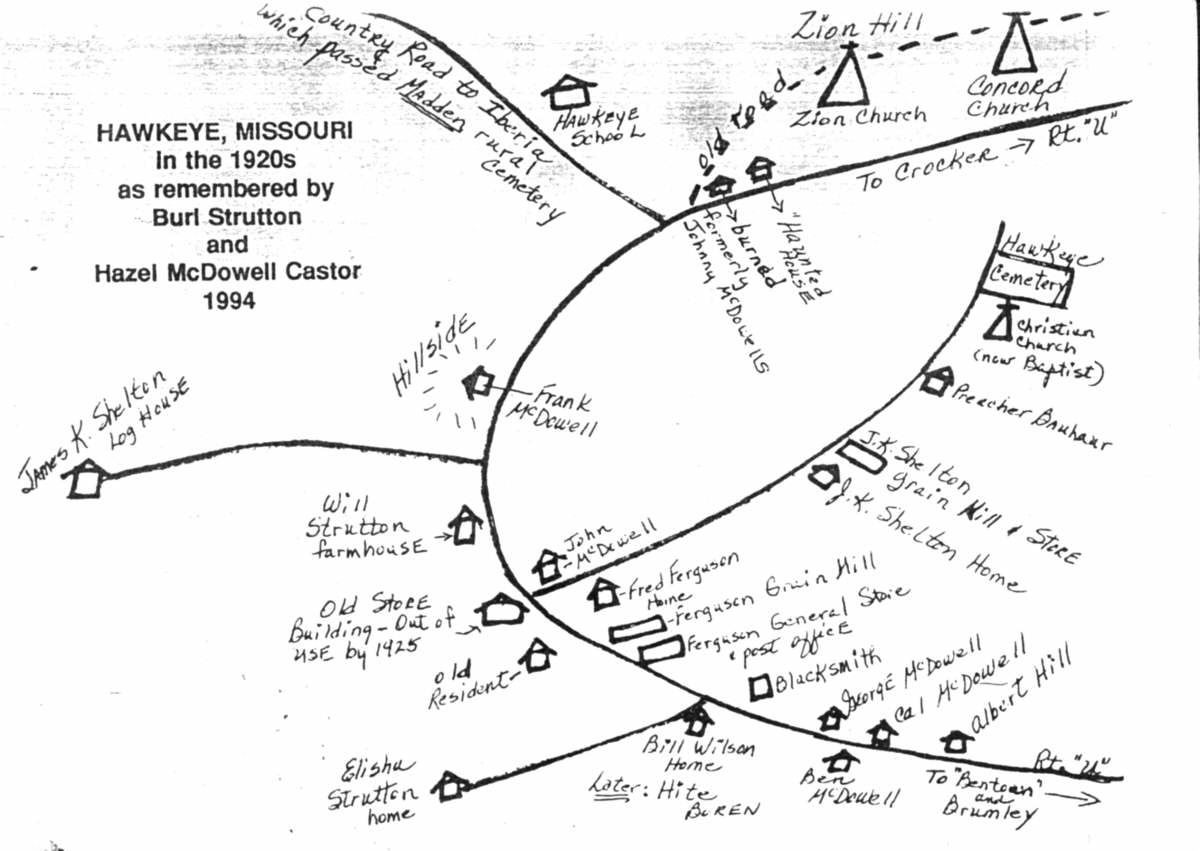 HAWKEYE, MISSOURI
In the 1920s
as remembered by
Burl Strutton
and
Hazel McDowell Castor
1994
Country Road to Iberia
which passed Madden rural
Cemetery
HAWKEYE
SCHOOL
Zion Hill
Zion Church
CONCORD
Church
old road
To CROCKER → Rt. "U"
"HAUNTED
HOUSE
burned
formerly
Johnny McDowells
Hawkeye
Cemetery
Christian
Church
(now Baptist)
Preacher Bauhaur
J.K. Shelton
Grain Mill & STORE
J.K. Shelton Home
Hillside
Frank
McDowell
JAMES K. Shelton
Log House
Will
Strutton
farmhouse
John
McDowell
Fred Ferguson
Home
Ferguson Grain Mill
Ferguson General Store
& post officE
OLD STORE
Building - Out of
USE by 1925
old
Resident
Blacksmith
GeorgE McDowell
Cal McDowell
Albert Hill
Bill Wilson
Home
Later: Hite
BUREN
Elisha
Strutton
home
Ben
McDowell
Rt. "U"
To "Bentown"
and
Brumley